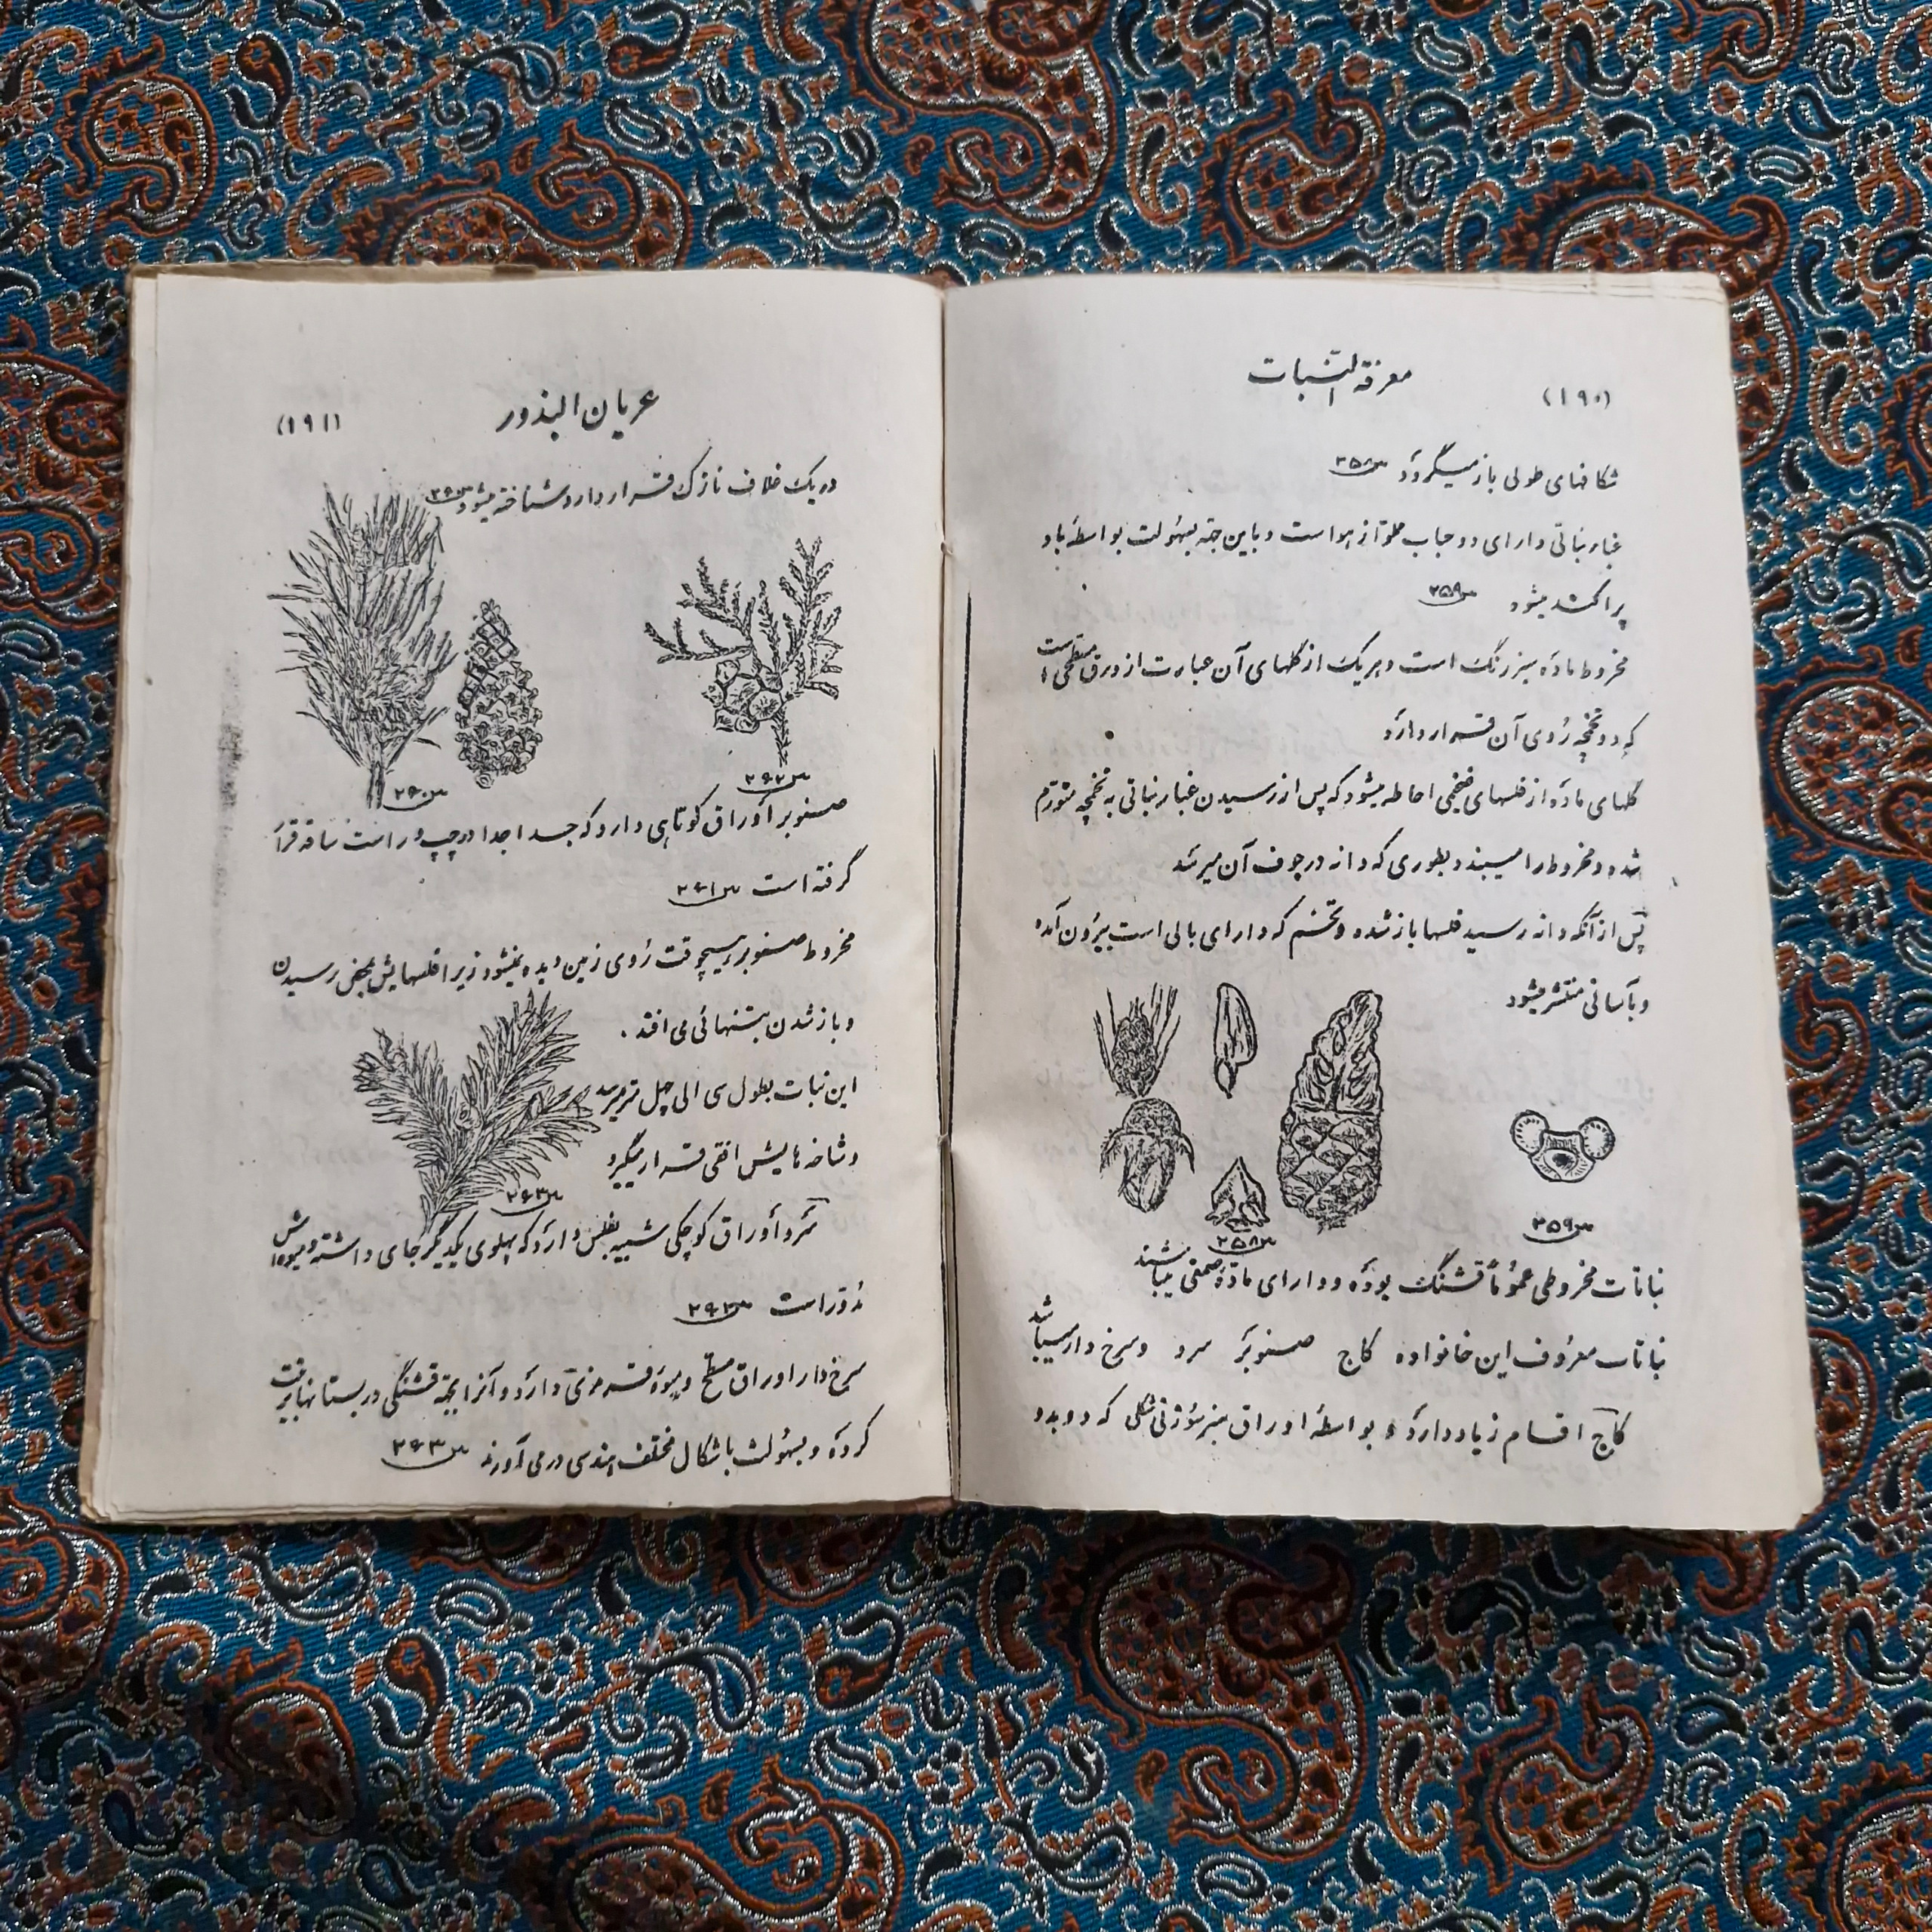 (۱۹۰)
معرفة النباتات
شکافهای طولی باز میگردد ۳۵۸
غبار نباتی دارای دو حباب مملو از هواست و باین جهة بسهولت بواسطه باد
پراکنده میشود ۳۵۹
مخروط ماده سبز رنگ است و هر یک از گلهای آن عبارت از ورق مسطحی است
که دو تخمچه روی آن قرار دارد
گلهای ماده از فلسهای ضخیمی احاطه میشود که پس از رسیدن غبار نباتی به تخمچه متورم
شده و مخروط را میبندد بطوری که دانه در جوف آن میرسد
پس از آنکه دانه رسید فلسها باز شده و تخم که دارای بالی است بیرون آمده
و بآسانی منتشر میشود
۳۵۹
۳۵۸
نباتات مخروطی عموماً قشنگ بوده و دارای ماده صمغی میباشند
نباتات معروف این خانواده کاج صنوبر سرو و سرخ دار میباشد
کاج اقسام زیاد دارد و بواسطه اوراق سبز سوزنی شکلی که دو بدو
عریان البذور
(۱۹۱)
در یک غلاف نازک قرار دارد شناخته میشود ۲۶۰
۲۶۲
۲۶۰
صنوبر اوراق کوتاهی دارد که جدا جدا در چپ و راست ساقه قرار
گرفته است ۲۶۱
مخروط صنوبر هیچوقت روی زمین دیده نمیشود زیرا فلسهایش بمحض رسیدن
و باز شدن بتنهائی می افتد .
این نبات بطول سی الی چهل متر میرسد
و شاخه هایش افقی قرار میگیرد
۲۶۳
سرو اوراق کوچکی شبیه بفلس دارد که پهلوی یکدیگر جای داشته و میوه اش
مدور است ۲۶۲
سرخ دار اوراق مسطح و میوه قرمزی دارد و آنرا بجهة قشنگی در بستانها تربیت
کرده و بسهولت باشکال مختلف هندسی در می آورند ۲۶۳